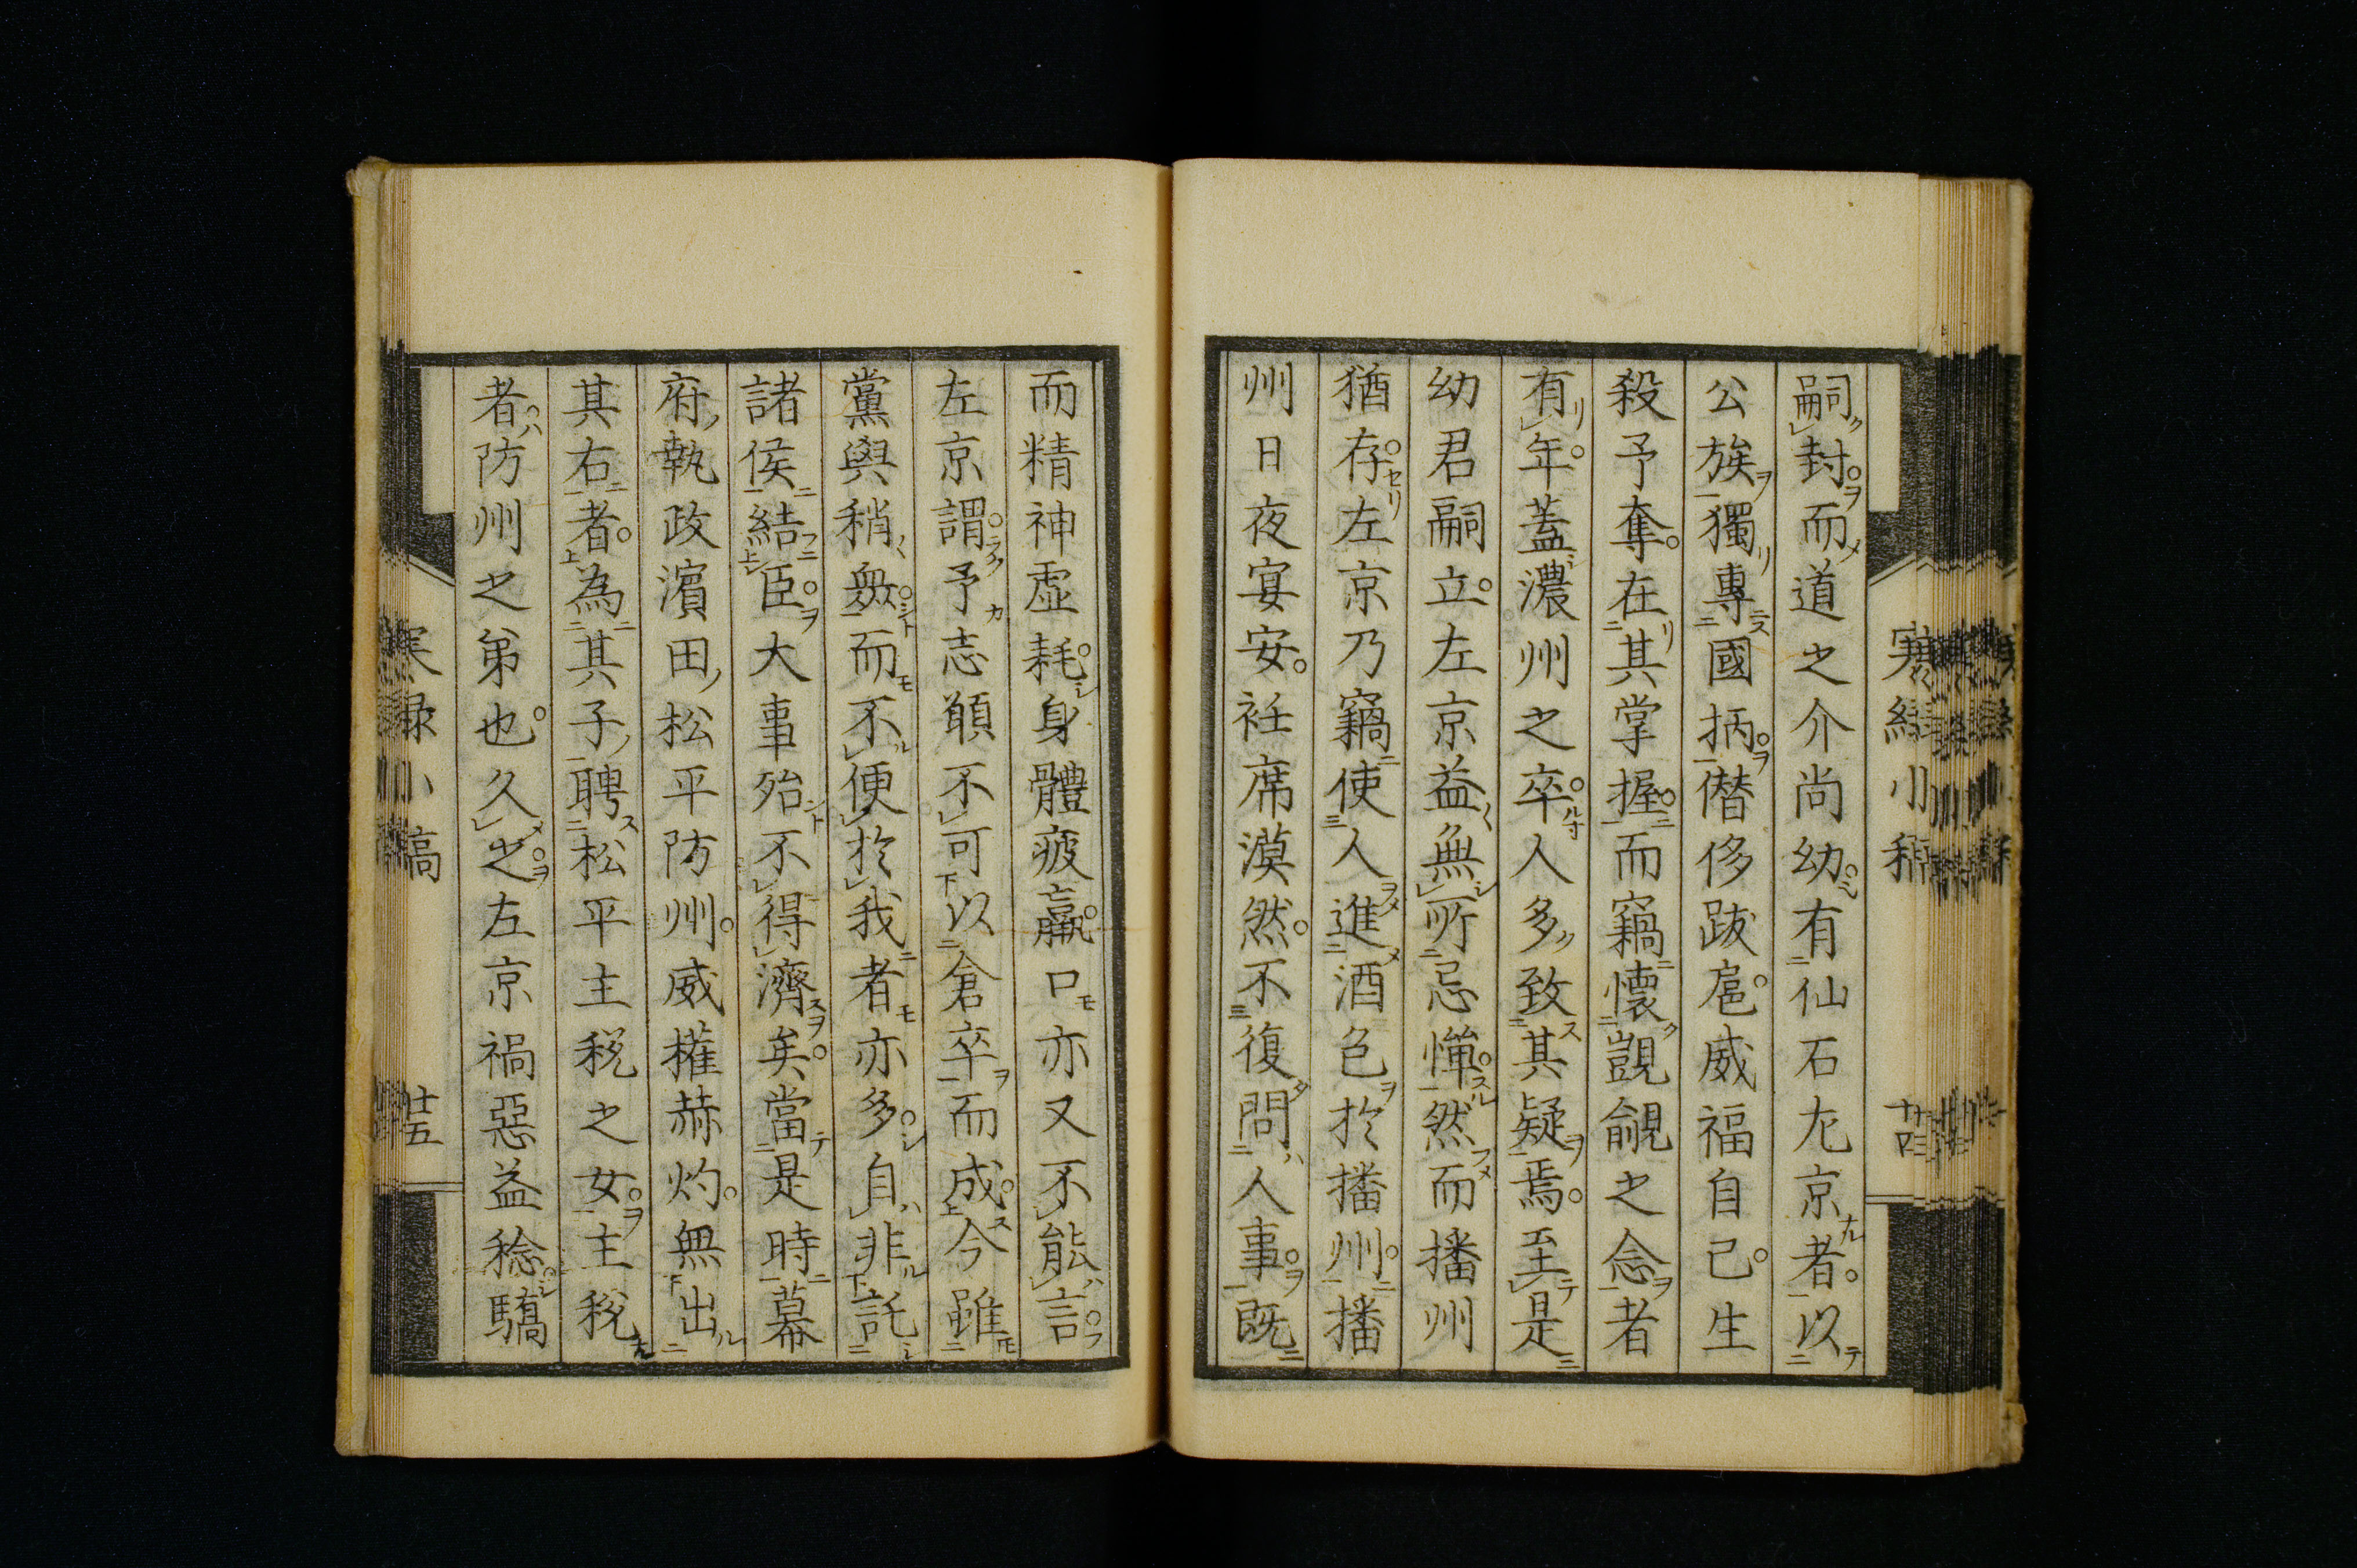 嗣封而道之介尚幼有仙石左京者以
公族獨專國柄僭侈跋扈威福自己生
殺予奪在其掌握而竊懷覬覦之念者
有年蓋濃州之卒人多致其疑焉至是
幼君嗣立左京益無所忌憚然而播州
猶存左京乃竊使人進酒色於播州播
州日夜宴安衽席漠然不復問人事既
而精神虛耗身體疲羸口亦又不能言
左京謂予志願不可以倉卒而成今雖
黨與稍衆而不便於我者亦多自非託
諸侯結臣大事殆不得濟矣當是時幕
府執政濵田松平防州威權赫灼無出
其右者為其子聘松平主稅之女主稅
者防州之弟也久之左京禍惡益稔驕
小稿
廿五